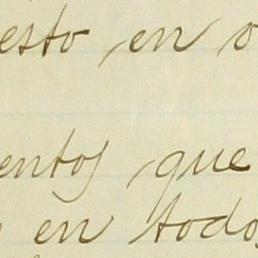 esto en o
entos que
en todos